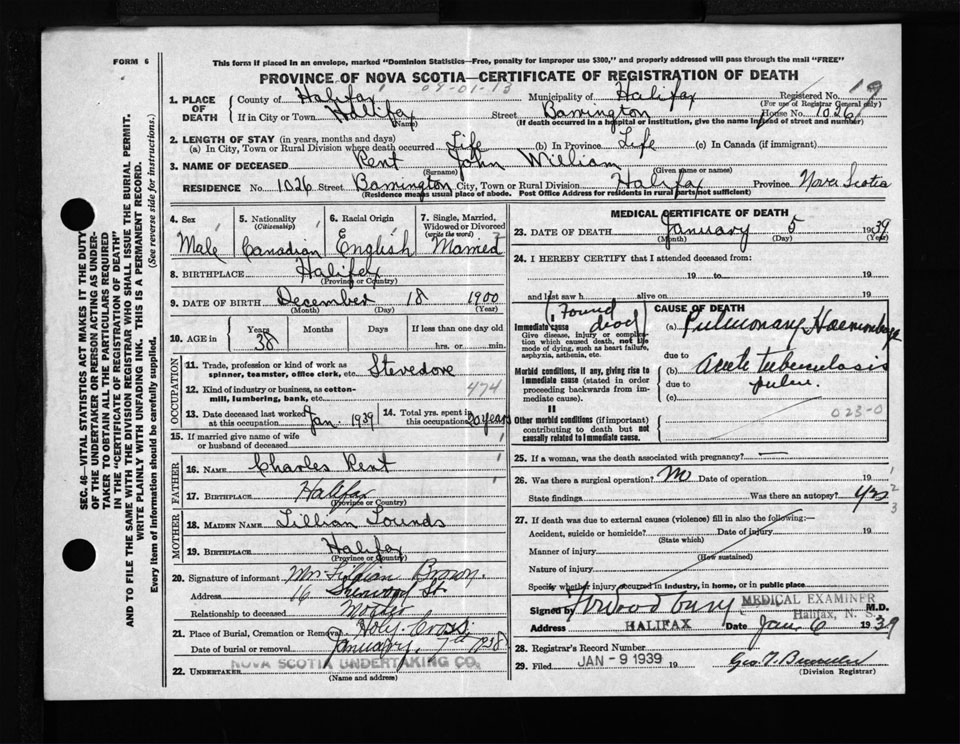 FORM 6
This form if placed in an envelope, marked "Dominion Statistics—Free, penalty for improper use $300," and properly addressed will pass through the mail "FREE"
PROVINCE OF NOVA SCOTIA—CERTIFICATE OF REGISTRATION OF DEATH
19
1. PLACE OF DEATH County of Halifax Municipality of Halifax Registered No.
(For use of Registrar General only)
If in City or Town Halifax Street Barrington House No. 1026
(Name) (If death occurred in a hospital or institution, give the name instead of street and number)
2. LENGTH OF STAY (in years, months and days)
(a) In City, Town or Rural Division where death occurred Life (b) In Province Life (c) In Canada (if immigrant)
3. NAME OF DECEASED Kent John William
(Surname) (Given name or names)
RESIDENCE No. 1026 Street Barrington City, Town or Rural Division Halifax Province Nova Scotia
(Residence means usual place of abode. Post Office Address for residents in rural parts not sufficient)
SEC. 46—VITAL STATISTICS ACT MAKES IT THE DUTY
OF THE UNDERTAKER OR PERSON ACTING AS UNDER-
TAKER TO OBTAIN ALL THE PARTICULARS REQUIRED
IN THE "CERTIFICATE OF REGISTRATION OF DEATH"
AND TO FILE THE SAME WITH THE DIVISION REGISTRAR WHO SHALL ISSUE THE BURIAL PERMIT.
WRITE PLAINLY WITH UNFADING INK. THIS IS A PERMANENT RECORD.
Every item of Information should be carefully supplied. (See reverse side for instructions.)
4. Sex 5. Nationality 6. Racial Origin 7. Single, Married,
(Citizenship) Widowed or Divorced
(write the word)
Male Canadian English Married
8. BIRTHPLACE Halifax
(Province or Country)
9. DATE OF BIRTH December 18 1900
(Month) (Day) (Year)
10. AGE in Years Months Days If less than one day old
38 hrs. or min.
OCCUPATION
11. Trade, profession or kind of work as
spinner, teamster, office clerk, etc. Stevedore
12. Kind of industry or business, as cotton-
mill, lumbering, bank, etc. 474
13. Date deceased last worked
at this occupation Jan. 1939
14. Total yrs. spent in
this occupation 20 years
15. If married give name of wife
or husband of deceased
FATHER
16. NAME Charles Kent
17. BIRTHPLACE Halifax
(Province or Country)
MOTHER
18. MAIDEN NAME Lillian Lounds
19. BIRTHPLACE Halifax
(Province or Country)
20. Signature of informant Mrs Lillian Brown.
Address 16 St.
Relationship to deceased Mother
21. Place of Burial, Cremation or Removal Holy Cross
Date of burial or removal January 7th 1938
22. UNDERTAKER NOVA SCOTIA UNDERTAKING CO.
(Name and address)
MEDICAL CERTIFICATE OF DEATH
23. DATE OF DEATH January 5 1939
(Month) (Day) (Year)
24. I HEREBY CERTIFY that I attended deceased from:
19 to 19
and last saw h alive on 19
Found dead
CAUSE OF DEATH
Immediate cause
Give disease, injury or complication which caused death, not the
mode of dying, such as heart failure,
asphyxia, asthenia, etc.
(a) Pulmonary Haemorrhage
due to
Morbid conditions, if any, giving rise to
immediate cause (stated in order
proceeding backwards from immediate cause).
(b) Acute tuberculosis
due to pulm.
(c)
II
023-0
Other morbid conditions (if important)
contributing to death but not
causally related to immediate cause.
25. If a woman, was the death associated with pregnancy? —
26. Was there a surgical operation? No Date of operation 19
State findings Was there an autopsy? yes
27. If death was due to external causes (violence) fill in also the following:—
Accident, suicide or homicide? Date of injury 19
(State which)
Manner of injury
(How sustained)
Nature of injury
Specify whether injury occurred in industry, in home, or in public place
Signed by Woodbury MEDICAL EXAMINER M.D.
Halifax, N. S.
Address HALIFAX Date Jan 6 1939
28. Registrar's Record Number
29. Filed JAN - 9 1939 19
(Division Registrar)